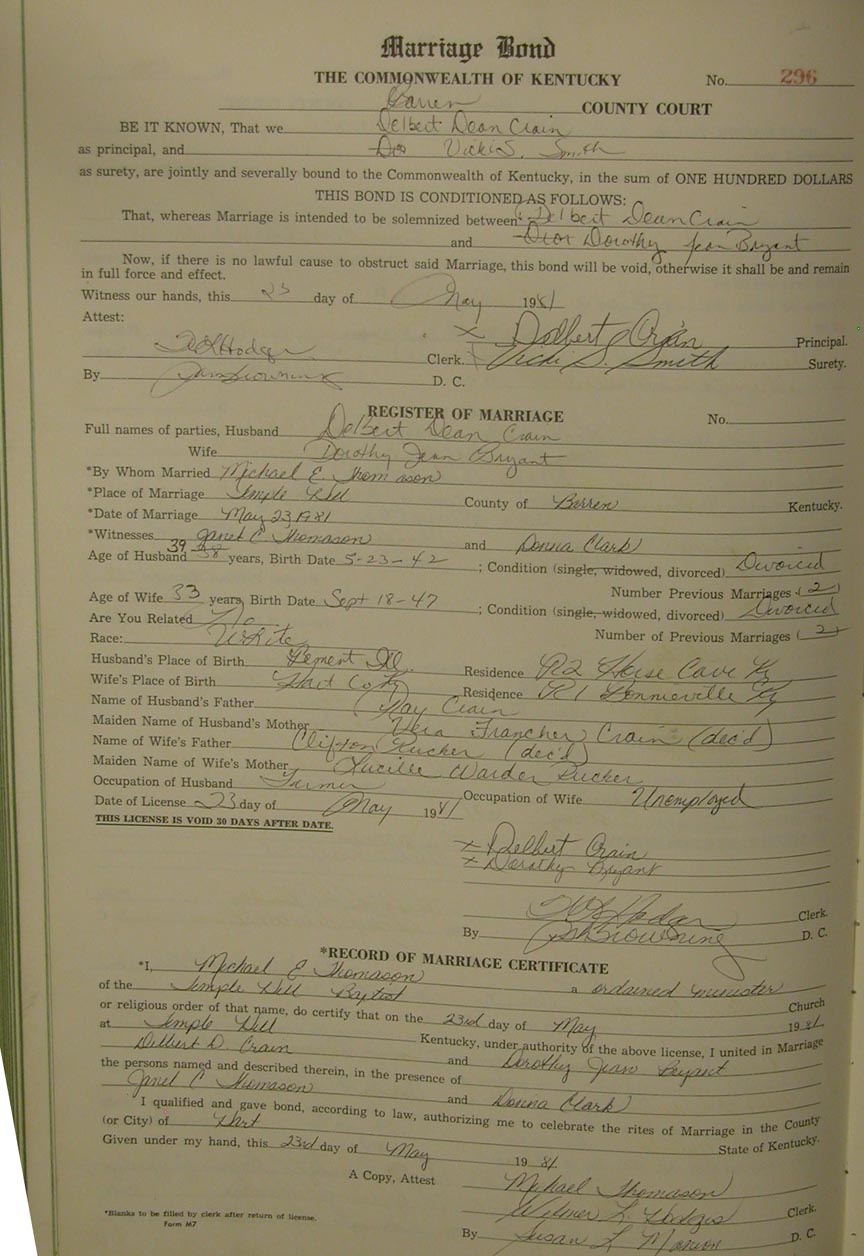 Marriage Bond
THE COMMONWEALTH OF KENTUCKY No. 296
Barren COUNTY COURT
BE IT KNOWN, That we Delbert Dean Crain
as principal, and Vicki S. Smith
as surety, are jointly and severally bound to the Commonwealth of Kentucky, in the sum of ONE HUNDRED DOLLARS
THIS BOND IS CONDITIONED AS FOLLOWS:
That, whereas Marriage is intended to be solemnized between Delbert Dean Crain
and Dorothy Jean Bryant
Now, if there is no lawful cause to obstruct said Marriage, this bond will be void, otherwise it shall be and remain
in full force and effect.
Witness our hands, this 23 day of May 1981
Attest:
x Delbert Crain Principal.
Clerk. Vicki S. Smith Surety.
By D. C.
REGISTER OF MARRIAGE No.
Full names of parties, Husband Delbert Dean Crain
Wife Dorothy Jean Bryant
*By Whom Married Michael E. Thomason
*Place of Marriage Temple Hill County of Barren Kentucky.
*Date of Marriage May 23, 1981
*Witnesses Janet C. Thomason and Donna Clark
Age of Husband 39 38 years, Birth Date 5-23-42 ; Condition (single, widowed, divorced) Divorced
Number Previous Marriages (2)
Age of Wife 33 years, Birth Date Sept 18-47 ; Condition (single, widowed, divorced) Divorced
Are You Related No Number of Previous Marriages (2)
Race: White
Husband's Place of Birth Bement Ill. Residence R2 Horse Cave Ky
Wife's Place of Birth Hart Co Ky Residence R1 Bonnieville Ky
Name of Husband's Father Ray Crain
Maiden Name of Husband's Mother Vera Francher Crain (dec'd)
Name of Wife's Father Clifton Rucker (dec'd)
Maiden Name of Wife's Mother Lucille Warder Rucker
Occupation of Husband Farmer Occupation of Wife Unemployed
Date of License 23 day of May 1981
THIS LICENSE IS VOID 30 DAYS AFTER DATE.
x Delbert Crain
x Dorothy Bryant
Clerk.
By Browning D. C.
*RECORD OF MARRIAGE CERTIFICATE
*I, Michael E Thomason a ordained minister
of the Temple Hill Baptist Church
or religious order of that name, do certify that on the 23rd day of May 1981
at Temple Hill Kentucky, under authority of the above license, I united in Marriage
Delbert D. Crain and Dorothy Jean Bryant
the persons named and described therein, in the presence of
Janet C Thomason and Donna Clark
I qualified and gave bond, according to law, authorizing me to celebrate the rites of Marriage in the County
(or City) of Hart State of Kentucky.
Given under my hand, this 23rd day of May 1981.
A Copy, Attest Michael Thomason
Wilmer L. Hodges Clerk.
*Blanks to be filled by clerk after return of license.
Form M7
By Susan L D. C.